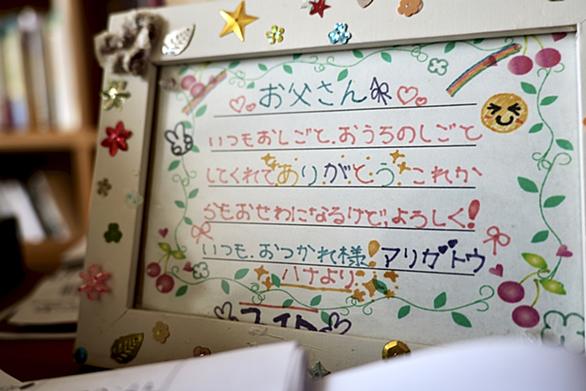 お父さん
いつもおしごと、おうちのしごと
してくれてありがとう これか
らもおせわになるけど、よろしく!
いつも、おつかれ様!アリガトウ
ハナより